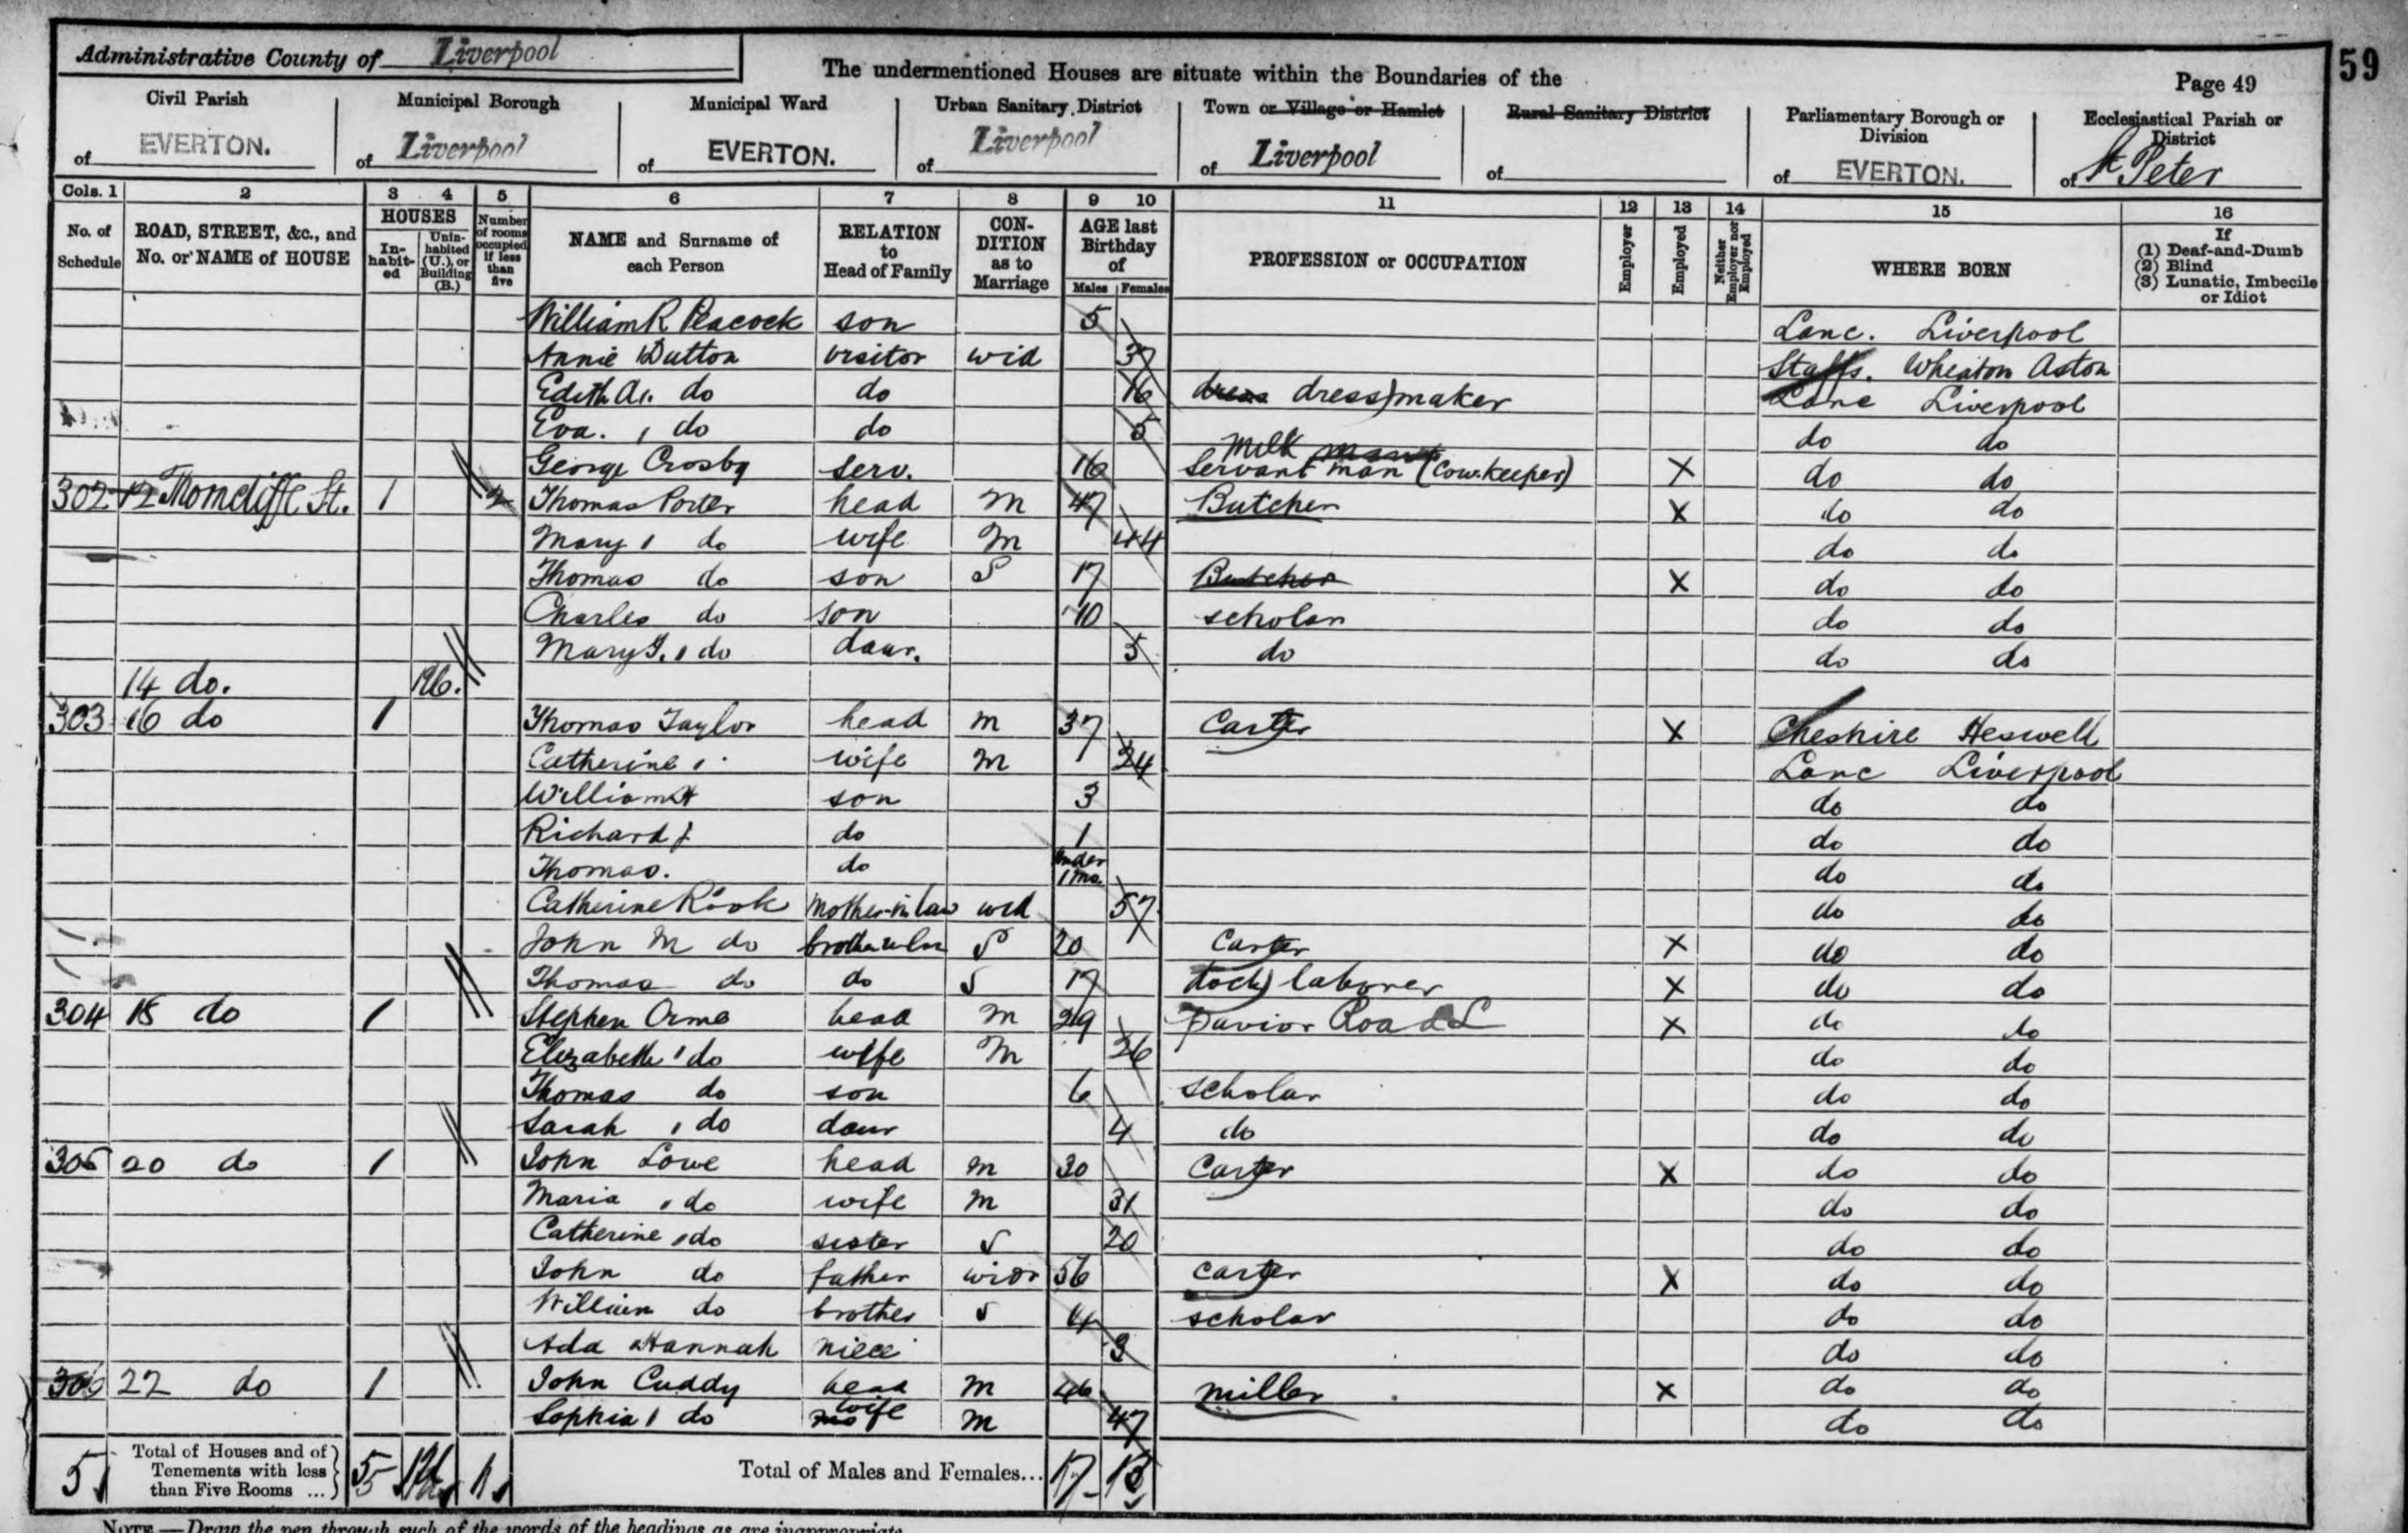 59
Administrative County of Liverpool
The undermentioned Houses are situate within the Boundaries of the
Page 49
Civil Parish of EVERTON.
Municipal Borough of Liverpool
Municipal Ward of EVERTON.
Urban Sanitary District of Liverpool
Town or Village or Hamlet of Liverpool
Rural Sanitary District of
Parliamentary Borough or Division of EVERTON.
Ecclesiastical Parish or District of St Peter
Cols. 1 2 3 4 5 6 7 8 9 10 11 12 13 14 15 16
No. of Schedule
ROAD, STREET, &c., and No. or NAME of HOUSE
HOUSES
Inhabited
Uninhabited (U.), or Building (B.)
Number of rooms occupied if less than five
NAME and Surname of each Person
RELATION to Head of Family
CONDITION as to Marriage
AGE last Birthday of
Males Females
PROFESSION or OCCUPATION
Employer
Employed
Neither Employer nor Employed
WHERE BORN
If (1) Deaf-and-Dumb (2) Blind (3) Lunatic, Imbecile or Idiot
William R Peacock son 5 Lanc. Liverpool
Annie Dutton visitor wid 37 Staffs. Wheaton Aston
Edith A. do do 16 dress dressmaker Lanc Liverpool
Eva. do do 5 do do
George Crosby serv. 16 Milk Servant man (Cowkeeper) X do do
302 12 Thorncliffe St. 1 Thomas Porter head M 47 Butcher X do do
Mary do wife M 44 do do
Thomas do son S 17 Butcher X do do
Charles do son 10 scholar do do
Mary J. do daur. 5 do do do
14 do.
303 16 do 1 Thomas Taylor head m 37 Carter X Cheshire Heswell
Catherine wife m 24 Lanc Liverpool
William H son 3 do do
Richard J do 1 do do
Thomas. do under 1 mo. do do
Catherine Rook Mother-in law wid 57 do do
John M do brother in law S 20 Carter X do do
Thomas do do S 17 dock laborer X do do
304 18 do 1 Stephen Orme head m 29 Pavior Road L X do do
Elizabeth do wife M 26 do do
Thomas do son 6 scholar do do
Sarah do daur 4 do do do
305 20 do 1 John Lowe head m 30 Carter X do do
Maria do wife m 31 do do
Catherine do sister S 20 do do
John do father widr 56 carter X do do
William do brother S scholar do do
Ada Hannah niece 3 do do
306 22 do 1 John Cuddy head m 46 miller X do do
Sophia do wife m 47 do do
5 Total of Houses and of Tenements with less than Five Rooms ... 5 1 Total of Males and Females... 17 13
NOTE.—Draw the pen through such of the words of the headings as are inappropriate.